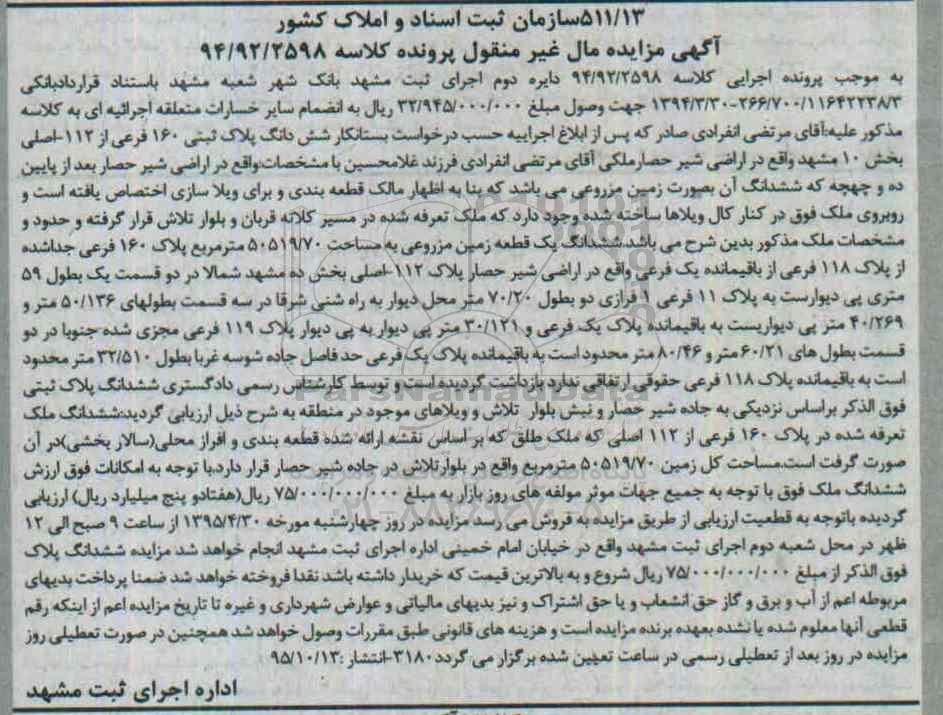 ۵۱۱/۱۳سازمان ثبت اسناد و املاک کشور
آگهی مزایده مال غیر منقول پرونده کلاسه ۹۴/۹۲/۲۵۹۸
به موجب پرونده اجرایی کلاسه ۹۴/۹۲/۲۵۹۸ دایره دوم اجرای ثبت مشهد بانک شهر شعبه مشهد باستناد قراردادبانکی
۲۶۶/۷۰۰/۱۱۶۴۲۲۳۸/۳-۱۳۹۴/۳/۳۰ جهت وصول مبلغ ۳۲/۹۴۵/۰۰۰/۰۰۰ ریال به انضمام سایر خسارات متعلقه اجرائیه ای به کلاسه
مذکور علیه:آقای مرتضی انفرادی صادر که پس از ابلاغ اجراییه حسب درخواست بستانکار شش دانگ پلاک ثبتی ۱۶۰ فرعی از ۱۱۲-اصلی
بخش ۱۰ مشهد واقع در اراضی شیر حصارملکی آقای مرتضی انفرادی فرزند غلامحسین با مشخصات:واقع در اراضی شیر حصار بعد از پایین
ده و چهچه که ششدانگ آن بصورت زمین مزروعی می باشد که بنا به اظهار مالک قطعه بندی و برای ویلا سازی اختصاص یافته است و
روبروی ملک فوق در کنار کال ویلاها ساخته شده وجود دارد که ملک تعرفه شده در مسیر کلاته قربان و بلوار تلاش قرار گرفته و حدود و
مشخصات ملک مذکور بدین شرح می باشد.ششدانگ یک قطعه زمین مزروعی به مساحت ۵۰۵۱۹/۷۰ مترمربع پلاک ۱۶۰ فرعی جداشده
از پلاک ۱۱۸ فرعی از باقیمانده یک فرعی واقع در اراضی شیر حصار پلاک ۱۱۲-اصلی بخش ده مشهد شمالا در دو قسمت یک بطول ۵۹
متری پی دیوارست به پلاک ۱۱ فرعی ۱ فرازی دو بطول ۷۰/۲۰ متر محل دیوار به راه شنی شرقا در سه قسمت بطولهای ۵۰/۱۳۶ متر و
۴۰/۲۶۹ متر پی دیواریست به باقیمانده پلاک یک فرعی و ۳۰/۱۲۱ متر پی دیوار به پی دیوار پلاک ۱۱۹ فرعی مجزی شده جنوبا در دو
قسمت بطول های ۶۰/۲۱ متر و ۸۰/۴۶ متر محدود است به باقیمانده پلاک یک فرعی حد فاصل جاده شوسه غربا بطول ۳۲/۵۱۰ متر محدود
است به باقیمانده پلاک ۱۱۸ فرعی حقوقی ارتفاقی ندارد بازداشت گردیده است و توسط کارشناس رسمی دادگستری ششدانگ پلاک ثبتی
فوق الذکر براساس نزدیکی به جاده شیر حصار و نبش بلوار تلاش و ویلاهای موجود در منطقه به شرح ذیل ارزیابی گردید:ششدانگ ملک
تعرفه شده در پلاک ۱۶۰ فرعی از ۱۱۲ اصلی که ملک طلق که بر اساس نقشه ارائه شده قطعه بندی و افراز محلی(سالار بخشی)در آن
صورت گرفت است.مساحت کل زمین ۵۰۵۱۹/۷۰ مترمربع واقع در بلوارتلاش در جاده شیر حصار قرار دارد.با توجه به امکانات فوق ارزش
ششدانگ ملک فوق با توجه به جمیع جهات موثر مولفه های روز بازار به مبلغ ۷۵/۰۰۰/۰۰۰/۰۰۰ ریال(هفتادو پنج میلیارد ریال) ارزیابی
گردیده باتوجه به قطعیت ارزیابی از طریق مزایده به فروش می رسد مزایده در روز چهارشنبه مورخه ۱۳۹۵/۴/۳۰ از ساعت ۹ صبح الی ۱۲
ظهر در محل شعبه دوم اجرای ثبت مشهد واقع در خیابان امام خمینی اداره اجرای ثبت مشهد انجام خواهد شد مزایده ششدانگ پلاک
فوق الذکر از مبلغ ۷۵/۰۰۰/۰۰۰/۰۰۰ ریال شروع و به بالاترین قیمت که خریدار داشته باشد نقدا فروخته خواهد شد ضمنا پرداخت بدیهای
مربوطه اعم از آب و برق و گاز حق انشعاب و یا حق اشتراک و نیز بدیهای مالیاتی و عوارض شهرداری و غیره تا تاریخ مزایده اعم از اینکه رقم
قطعی آنها معلوم شده یا نشده بعهده برنده مزایده است و هزینه های قانونی طبق مقررات وصول خواهد شد همچنین در صورت تعطیلی روز
مزایده در روز بعد از تعطیلی رسمی در ساعت تعیین شده برگزار می گردد.۳۱۸۰-انتشار :۹۵/۱۰/۱۳
اداره اجرای ثبت مشهد
ParsNamadData